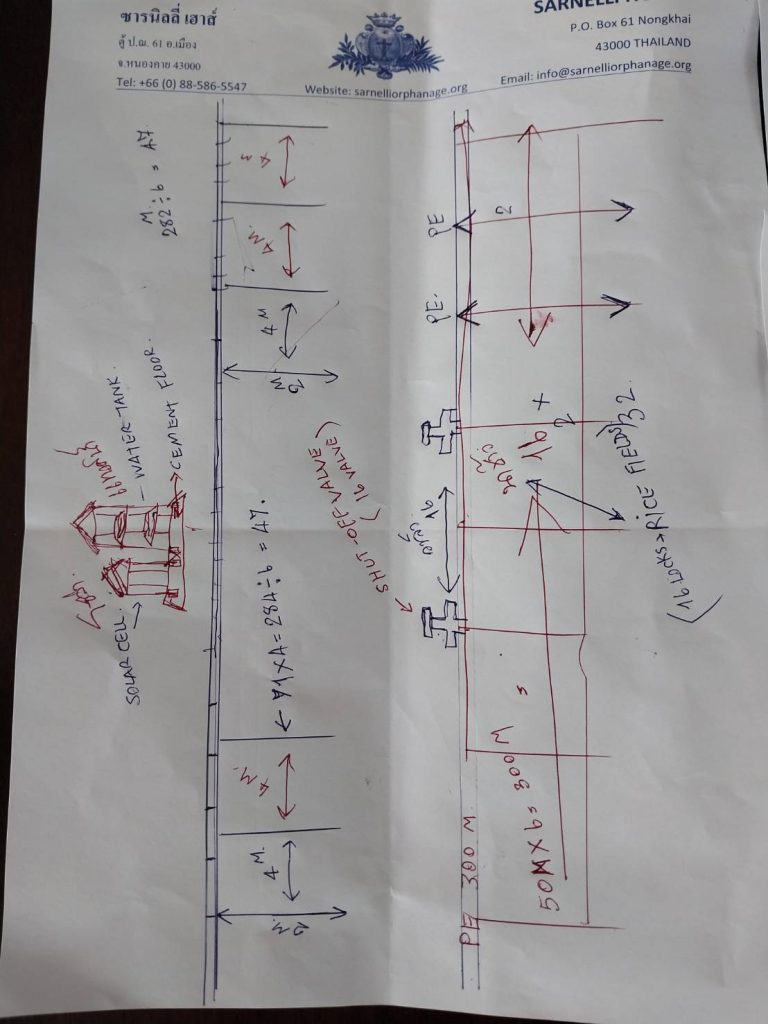 ซารนิลลี่ เฮาส์
ตู้ ป.ณ. 61 อ.เมือง
จ.หนองคาย 43000
Tel: +66 (0) 88-586-5547
Website: sarnelliorphanage.org
P.O. Box 61 Nongkhai
43000 THAILAND
Email: info@sarnelliorphanage.org
M.
282 ÷ 6 = 47
4 M.
4 M
2 M
WATER TANK.
CEMENT FLOOR.
SOLAR CELL.
71 X 4 = 284 ÷ 6 = 47.
4 M.
4 M.
2 M.
PE
PE.
2
SHUT-OFF VALVE
(16 VALVE)
16
16 + 2
(16 LOCKS → RICE FIELDS) 32.
50M X 6 = 300 M
PE 300 M.